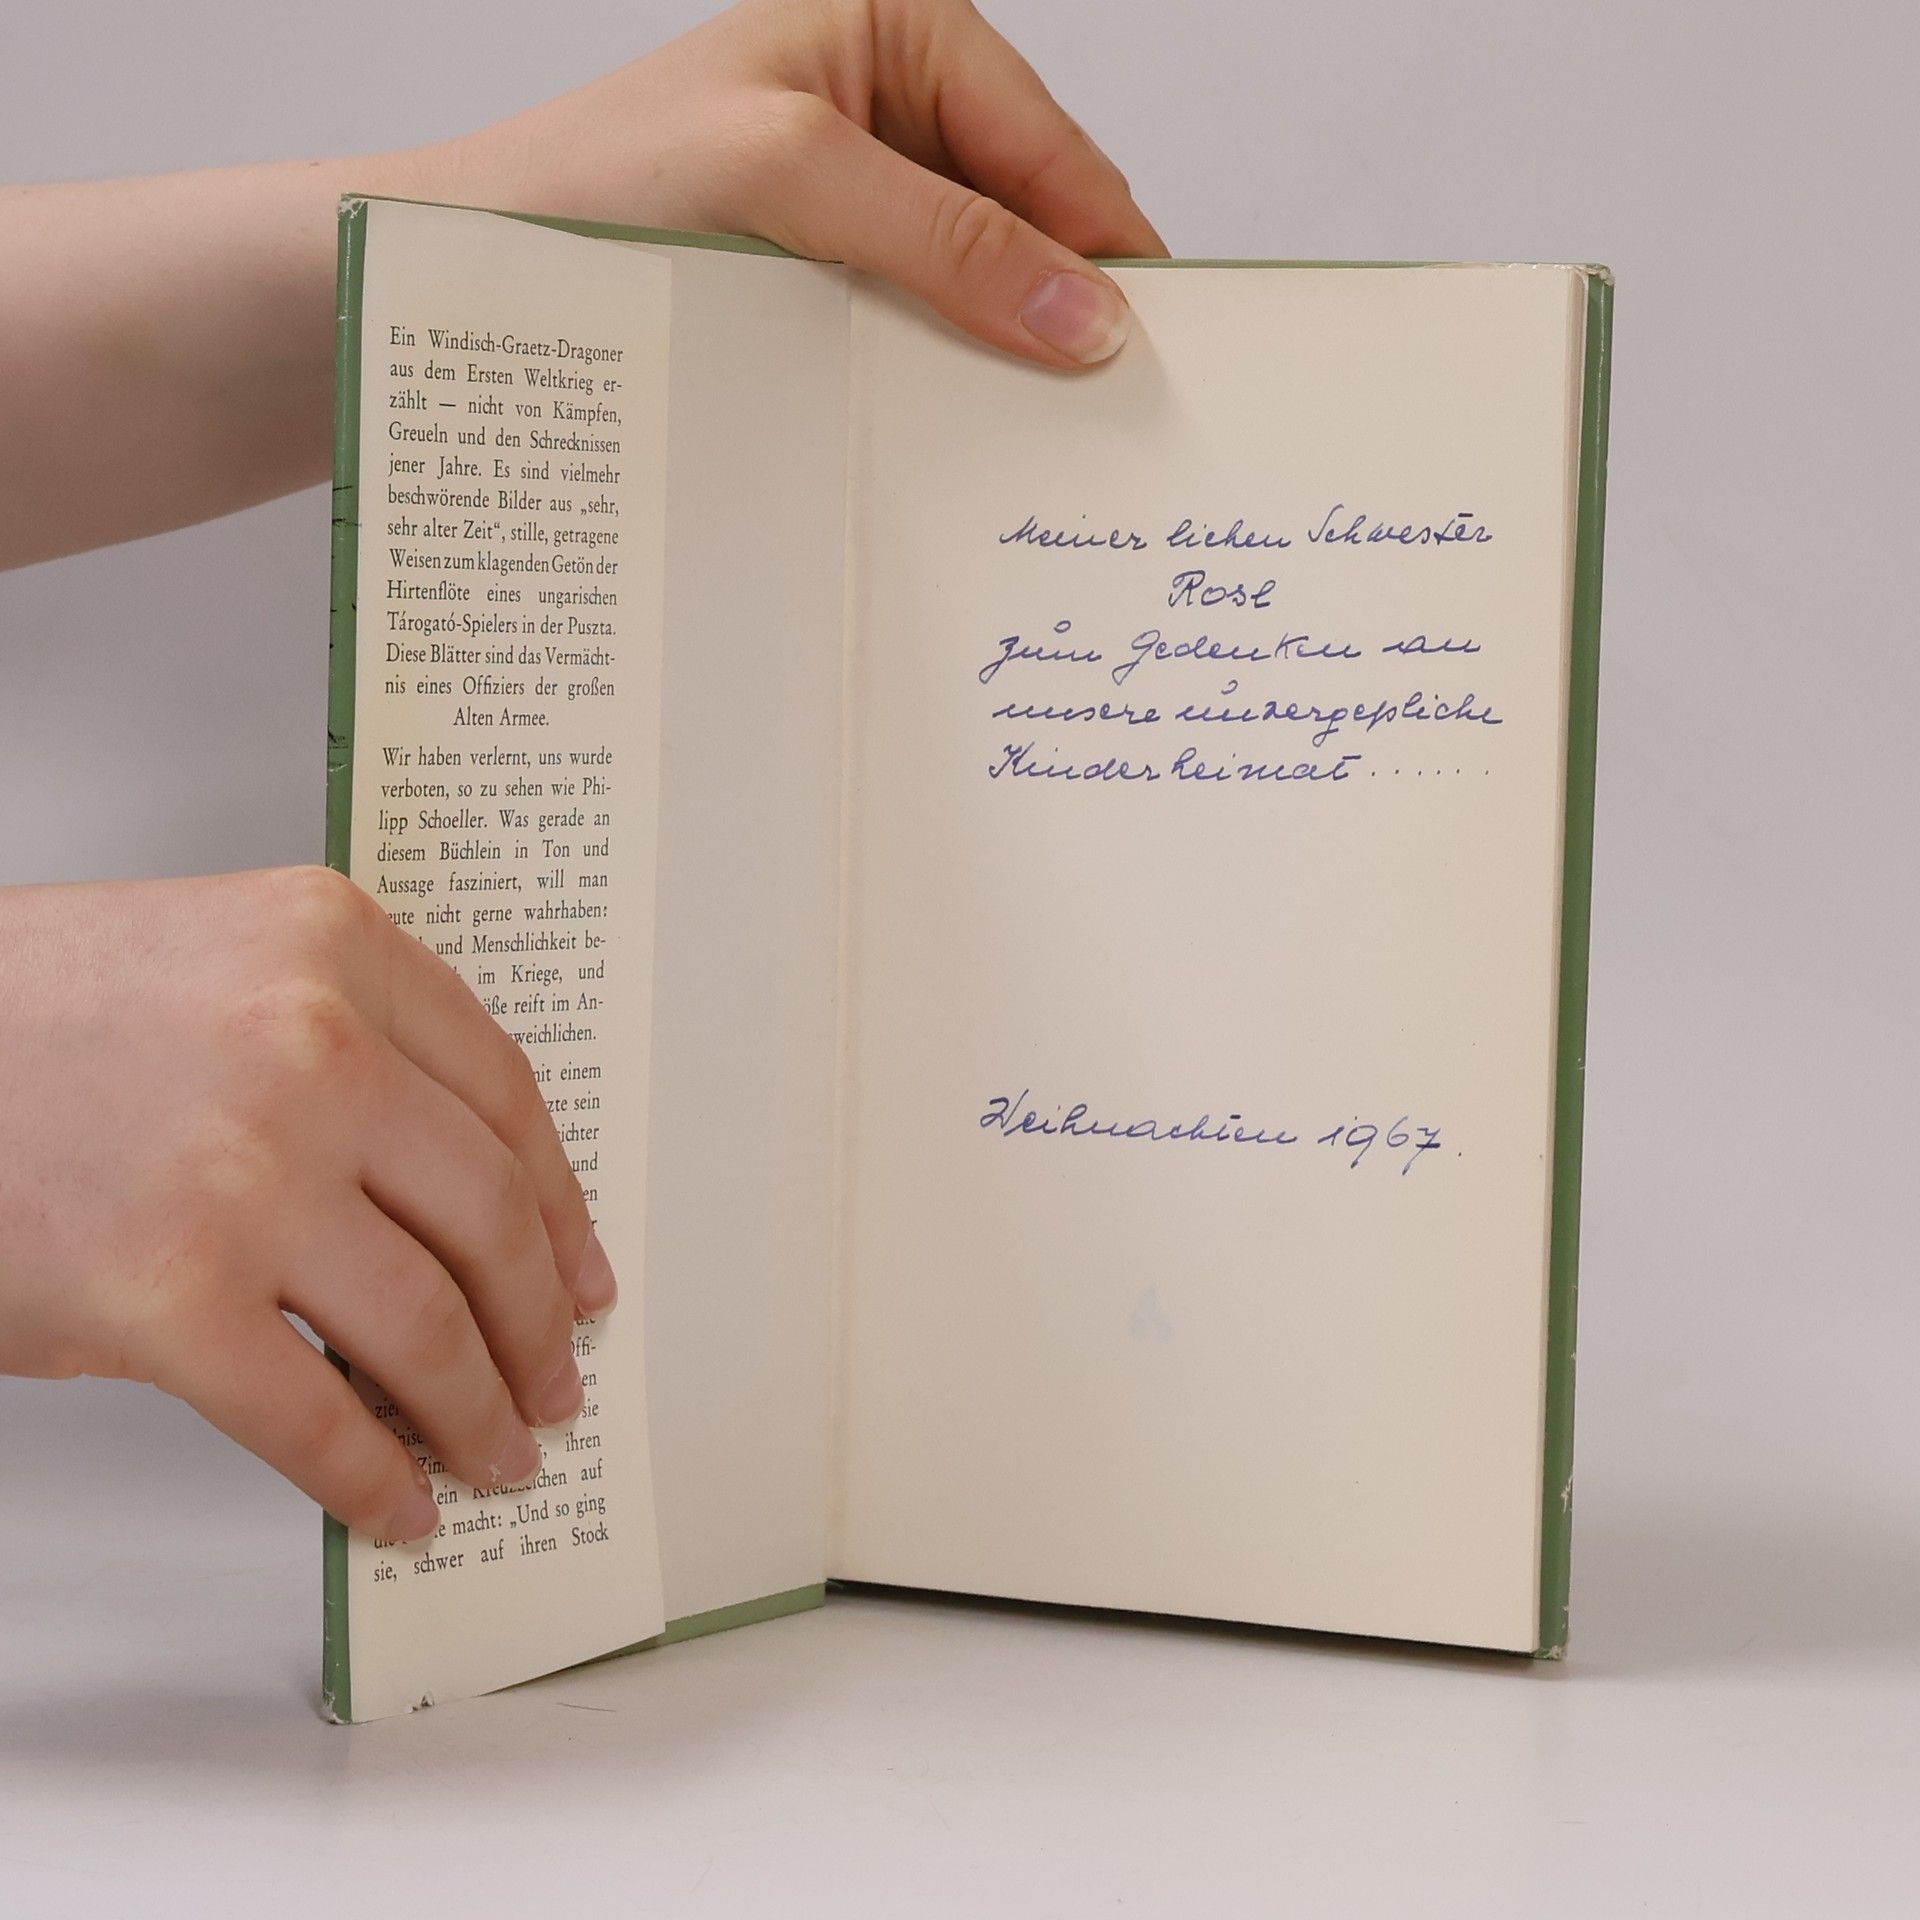 Ein Windisch-Graetz-Dragoner
aus dem Ersten Weltkrieg er-
zählt — nicht von Kämpfen,
Greueln und den Schrecknissen
jener Jahre. Es sind vielmehr
beschwörende Bilder aus „sehr,
sehr alter Zeit“, stille, getragene
Weisen zum klagenden Getön der
Hirtenflöte eines ungarischen
Tárogató-Spielers in der Puszta.
Diese Blätter sind das Vermächt-
nis eines Offiziers der großen
Alten Armee.
Wir haben verlernt, uns wurde
verboten, so zu sehen wie Phi-
lipp Schoeller. Was gerade an
diesem Büchlein in Ton und
Aussage fasziniert, will man
nicht gerne wahrhaben:
und Menschlichkeit be-
im Kriege, und
reift im An-
einem
sein
und
sie
ihren
ein auf
macht: „Und so ging
sie, schwer auf ihren Stock
Meiner lieben Schwester
Rosl
zum Gedenken an
unsere unvergeßliche
Kinderheimat ......
Weihnachten 1967.